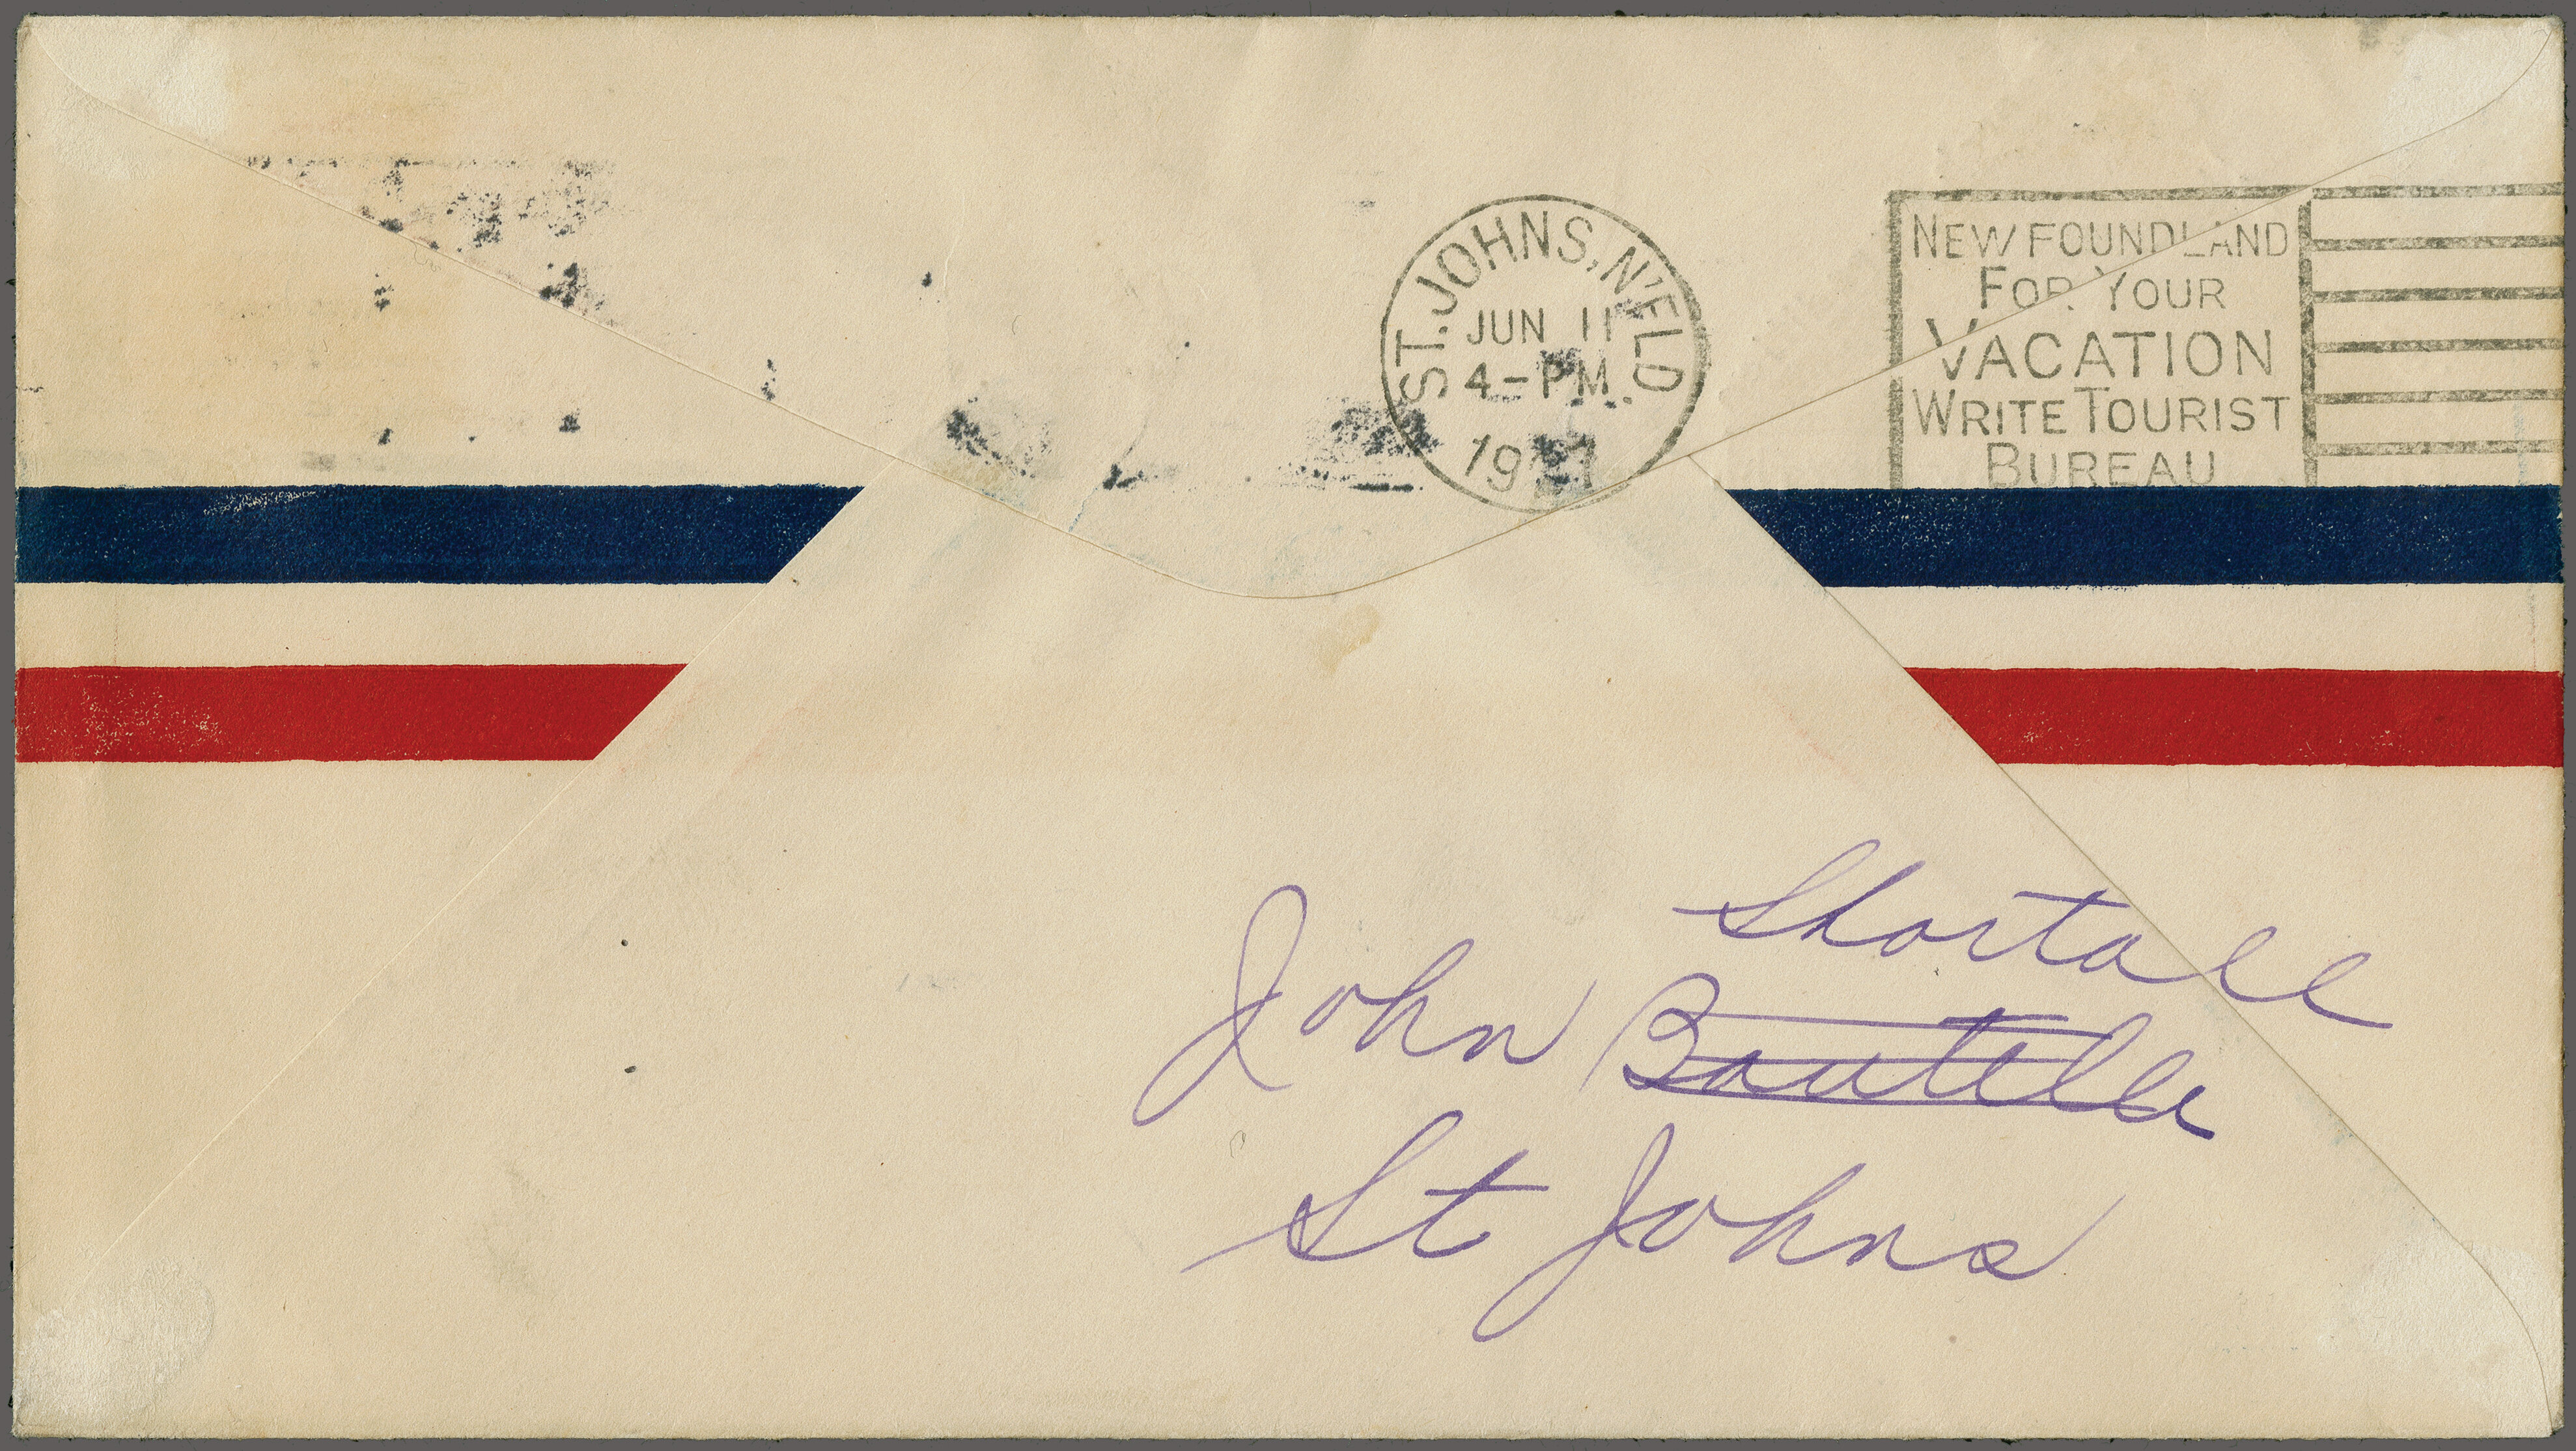 ST. JOHNS, N'FLD.
JUN 11
4-PM
NEWFOUNDLAND
FOR YOUR
VACATION
WRITE TOURIST
BUREAU
Shortall
John
St Johns